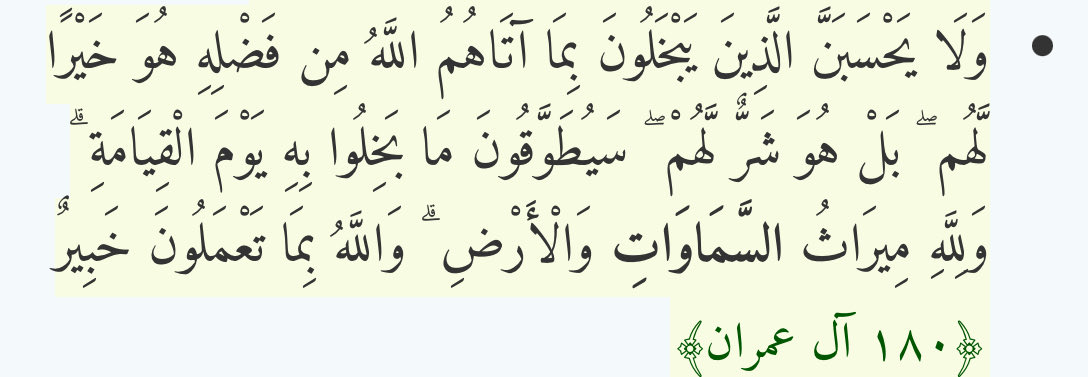 • وَلَا يَحْسَبَنَّ الَّذِينَ يَبْخَلُونَ بِمَا آتَاهُمُ اللَّهُ مِن فَضْلِهِ هُوَ خَيْرًا
لَّهُم ۖ بَلْ هُوَ شَرٌّ لَّهُمْ ۖ سَيُطَوَّقُونَ مَا بَخِلُوا بِهِ يَوْمَ الْقِيَامَةِ ۗ
وَلِلَّهِ مِيرَاثُ السَّمَاوَاتِ وَالْأَرْضِ ۗ وَاللَّهُ بِمَا تَعْمَلُونَ خَبِيرٌ
﴿١٨٠ آل عمران﴾